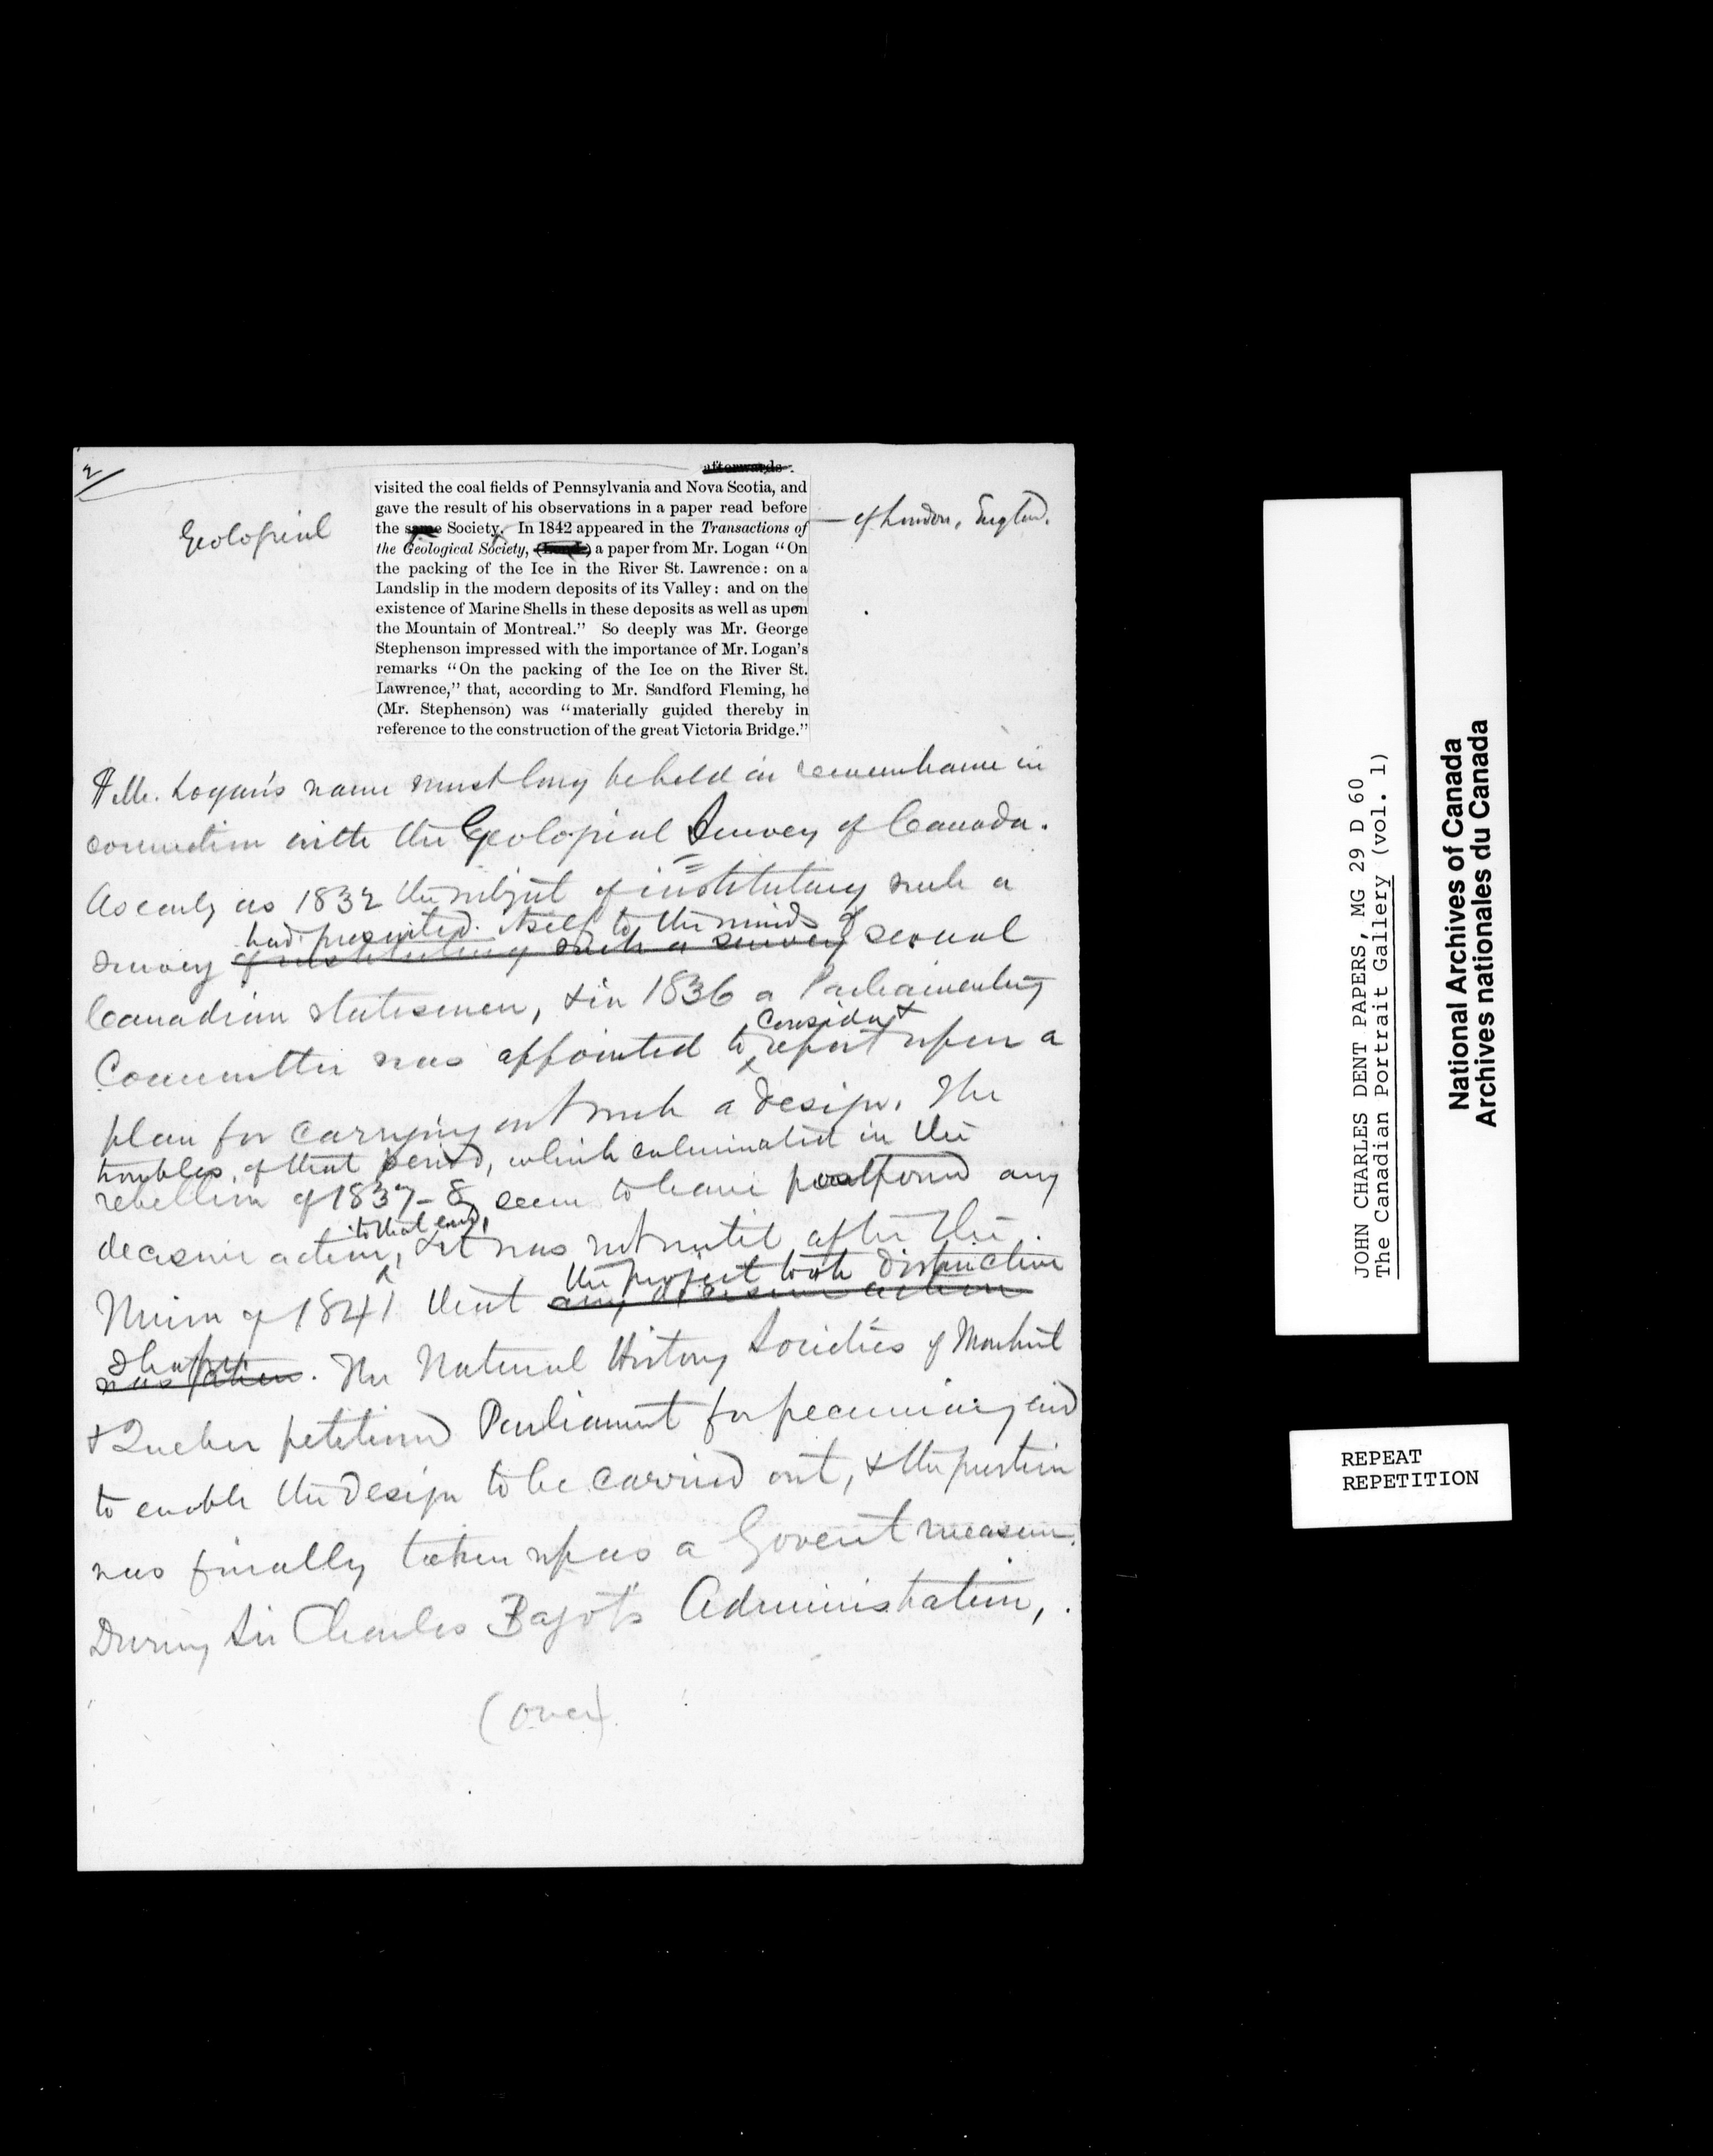 2
afterwards.
visited the coal fields of Pennsylvania and Nova Scotia, and
gave the result of his observations in a paper read before
the same Society. In 1842 appeared in the Transactions of
the Geological Society, a paper from Mr. Logan “On
the packing of the Ice in the River St. Lawrence: on a
Landslip in the modern deposits of its Valley: and on the
existence of Marine Shells in these deposits as well as upon
the Mountain of Montreal.” So deeply was Mr. George
Stephenson impressed with the importance of Mr. Logan's
remarks “On the packing of the Ice on the River St.
Lawrence,” that, according to Mr. Sandford Fleming, he
(Mr. Stephenson) was “materially guided thereby in
reference to the construction of the great Victoria Bridge.”
Geological
of London, England.
¶ Mr. Logan's name must long be held in remembrance in
connection with the Geological Survey of Canada.
As early as 1832 the subject of instituting such a
had presented itself to the minds of
survey of instituting such a survey several
Canadian statesmen, & in 1836 a Parliamentary
consider &
Committee was appointed to report upon a
plan for carrying out such a design. The
troubles of that period, which culminated in the
rebellion of 1837-8, seem to have postponed any
to that end,
decisive action, & it was not until after the
the project took distinctive
Union of 1841 that any decisive action
shape
was taken. The Natural History Societies of Montreal
& Quebec petitioned Parliament for pecuniary aid
to enable the design to be carried out, & the question
was finally taken up as a Govent measure.
During Sir Charles Bagot's Administration,
(over)
JOHN CHARLES DENT PAPERS, MG 29 D 60
The Canadian Portrait Gallery (vol. 1)
National Archives of Canada
Archives nationales du Canada
REPEAT
REPETITION